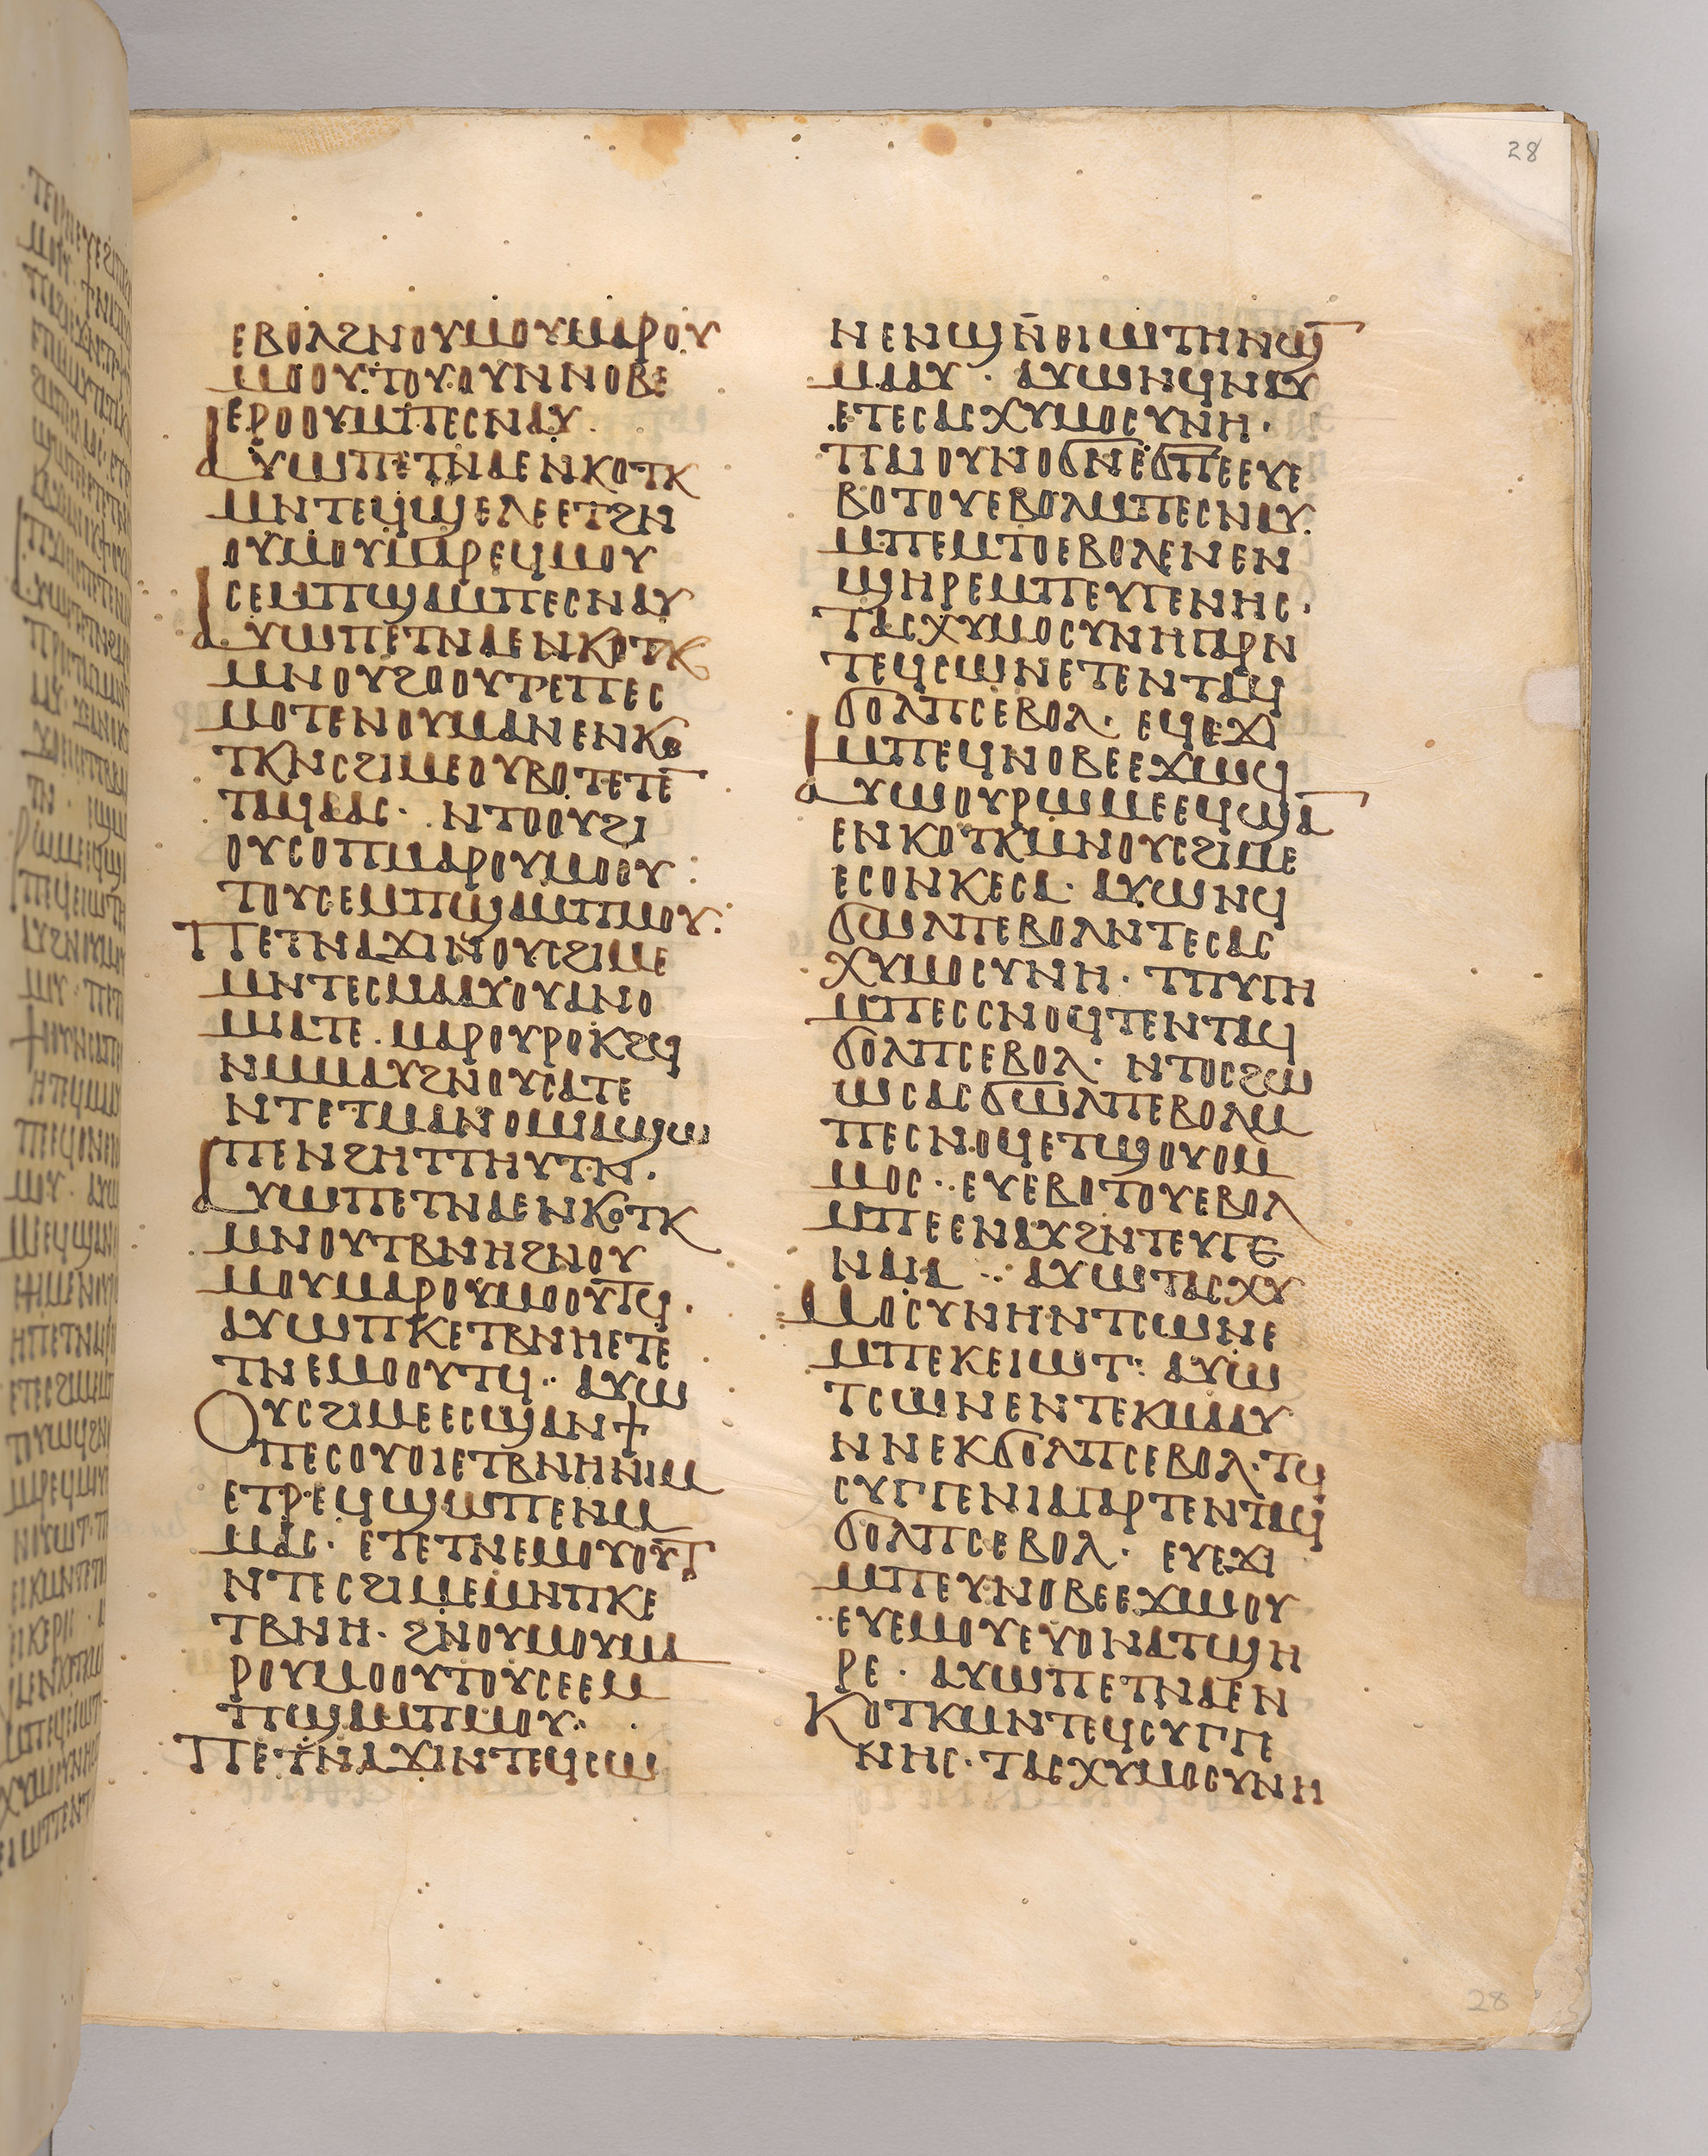 28
ⲉⲃⲟⲗϩⲛⲟⲩⲙⲟⲩⲙⲁⲣⲟⲩ
ⲙⲟⲟⲩⲧⲟⲩ·ⲟⲩⲛⲛⲟⲃⲉ
ⲉⲣⲟⲟⲩⲙⲡⲉⲥⲛⲁⲩ·
ⲁⲩⲱⲡⲉⲧⲛⲁⲉⲛⲕⲟⲧⲕ
ⲙⲛⲧⲉϥϣⲉⲗⲉⲉⲧϩⲛ
ⲟⲩⲙⲟⲩⲙⲁⲣⲉϥⲙⲟⲩ
ⲥⲉⲙⲡϣⲁⲙⲡⲉⲥⲛⲁⲩ
ⲁⲩⲱⲡⲉⲧⲛⲁⲉⲛⲕⲟⲧⲕ
ⲙⲛⲟⲩϩⲟⲟⲩⲧⲣⲉⲡⲉⲥ
ⲙⲟⲧⲉⲛⲟⲩⲙⲁⲛⲉⲛⲕⲟ
ⲧⲕⲛⲥϩⲓⲙⲉⲟⲩⲃⲟⲧⲉⲧⲉ̄
ⲧⲁϥⲁⲁⲥ· ⲛⲧⲟⲟⲩϩⲓ
ⲟⲩⲥⲟⲡⲙⲁⲣⲟⲩⲙⲟⲟⲩ
ⲧⲟⲩⲥⲉⲙⲡϣⲁⲙⲡⲙⲟⲩ:
ⲡⲉⲧⲛⲁϫⲓⲛⲟⲩⲥϩⲓⲙⲉ
ⲙⲛⲧⲉⲥⲙⲁⲁⲩⲟⲩⲁⲛⲟ
ⲙⲓⲁⲧⲉ·ⲙⲁⲣⲟⲩⲣⲟⲕϩϥ
ⲛⲙⲙⲁⲩϩⲛⲟⲩⲥⲁⲧⲉ
ⲛⲧⲉⲧⲙⲁⲛⲟⲙⲓⲁϣⲱ
ⲡⲉⲛϩⲏⲧⲧⲏⲩⲧⲛ·
ⲁⲩⲱⲡⲉⲧⲛⲁⲉⲛⲕⲟⲧⲕ
ⲙⲛⲟⲩⲧⲃⲛⲏϩⲛⲟⲩ
ⲙⲟⲩⲙⲁⲣⲟⲩⲙⲟⲟⲩⲧϥ·
ⲁⲩⲱⲡⲕⲉⲧⲃⲛⲏⲉⲧⲉ
ⲧⲛⲉⲙⲟⲟⲩⲧϥ·· ⲁⲩⲱ
ⲟⲩⲥϩⲓⲙⲉⲉⲥϣⲁⲛϯ
ⲡⲉⲥⲟⲩⲟⲓⲉⲧⲃⲛⲏⲛⲓⲙ
ⲉⲧⲣⲉϥϣⲱⲡⲉⲛⲙ
ⲙⲁⲥ· ⲉⲧⲉⲧⲛⲉⲙⲟⲩⲟⲩⲧ̄
ⲛⲧⲉⲥϩⲓⲙⲉⲙⲛⲡⲕⲉ
ⲧⲃⲛⲏ· ϩⲛⲟⲩⲙⲟⲩⲙⲁ
ⲣⲟⲩⲙⲟⲟⲩⲧⲟⲩⲥⲉⲉⲙ
ⲡϣⲁⲙⲡⲙⲟⲩ:
ⲡⲉⲧⲛⲁϫⲓⲛⲧⲉϥⲥⲱ
ⲛⲉⲛϣⲛ̄ⲉⲓⲱⲧⲏⲛϣ̄
ⲙⲁⲁⲩ· ⲁⲩⲱⲛϥⲛⲁⲩ
ⲉⲧⲉⲥⲁⲥⲭⲩⲙⲟⲥⲩⲛⲏ·
ⲡⲁⲓⲟⲩⲛⲟϭⲛⲉϭⲡⲉⲉⲩⲉ
ⲃⲟⲧⲟⲩⲉⲃⲟⲗⲙⲡⲉⲥⲛⲁⲩ·
ⲙⲡⲉⲙⲧⲟⲉⲃⲟⲗⲉⲛⲉⲛ
ϣⲏⲣⲉⲙⲡⲉⲩⲅⲉⲛⲏⲥ·
ⲧⲁⲥⲭⲩⲙⲟⲥⲩⲛⲏⲅⲁⲣⲛ
ⲧⲉϥⲥⲱⲛⲉⲧⲉⲛⲧⲁϥ
ϭⲟⲗⲡⲥⲉⲃⲟⲗ· ⲉϥⲉϫⲓ
ⲙⲡⲉϥⲛⲟⲃⲉⲉϫⲱϥ
ⲁⲩⲱⲟⲩⲣⲱⲙⲉⲉϥϣⲁ̄
ⲉⲛⲕⲟⲧⲕⲙⲛⲟⲩⲥϩⲓⲙⲉ
ⲉⲥⲟⲛⲕⲉⲥⲁ· ⲁⲩⲱⲛϥ
ϭⲱⲗⲡⲉⲃⲟⲗⲛⲧⲉⲥⲁⲥ
ⲭⲩⲙⲟⲥⲩⲛⲏ· ⲧⲡⲩⲅⲏ
ⲙⲡⲉⲥⲥⲛⲟϥⲧⲉⲛⲧⲁϥ
ϭⲟⲗⲡⲥⲉⲃⲟⲗ· ⲛⲧⲟⲥϩⲱ
ⲱⲥⲁⲥϭⲱⲗⲡⲉⲃⲟⲗⲙ
ⲡⲉⲥⲛⲟϥⲉⲧϣⲟⲩⲟⲙ
ⲙⲟⲥ··ⲉⲩⲉⲃⲟⲧⲟⲩⲉⲃⲟⲗ
ⲙⲡⲉⲉⲛⲁⲩϩⲛⲧⲉⲩⲅⲉ
ⲛⲁⲓⲁ ··ⲁⲩⲱⲧⲁⲥⲭⲩ
ⲙⲟⲥⲩⲛⲏⲛⲧⲥⲱⲛⲉ
ⲙⲡⲉⲕⲉⲓⲱⲧ: ⲁⲩⲱ
ⲧⲥⲱⲛⲉⲛⲧⲉⲕⲙⲁⲁⲩ
ⲛⲛⲉⲕϭⲟⲗⲡⲥⲉⲃⲟⲗ·ⲧϥ
ⲥⲩⲅⲅⲉⲛⲓⲁⲅⲁⲣⲧⲉⲛⲧⲁϥ
ϭⲟⲗⲡⲥⲉⲃⲟⲗ· ⲉⲩⲉϫⲓ
ⲙⲡⲉⲩⲛⲟⲃⲉⲉϫⲱⲟⲩ
··ⲉⲩⲉⲙⲟⲩⲉⲩⲟⲛⲁⲧϣⲏ
ⲣⲉ· ⲁⲩⲱⲡⲉⲧⲛⲁⲉⲛ
ⲕⲟⲧⲕⲙⲛⲧⲉϥⲥⲩⲅⲅⲉ
ⲛⲏⲥ·ⲧⲁⲥⲭⲩⲙⲟⲥⲩⲛⲏ
28